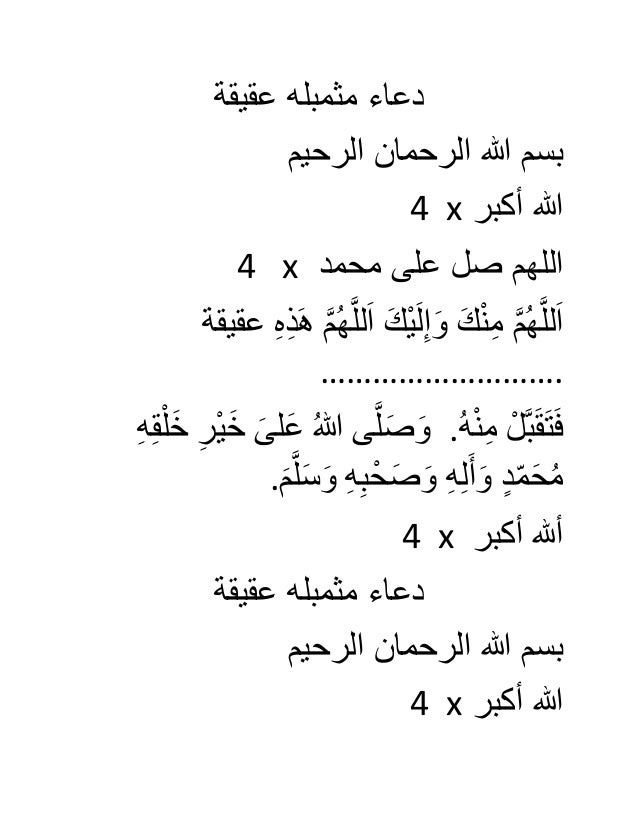 دعاء مثمبله عقيقة
بسم الله الرحمان الرحيم
الله أكبر 4 x
اللهم صل على محمد 4 x
اَللَّهُمَّ مِنْكَ وَإِلَيْكَ اَللَّهُمَّ هَذِهِ عقيقة
............................
فَتَقَبَّلْ مِنْهُ. وَصَلَّى اللهُ عَلىَ خَيْرِ خَلْقِهِ
مُحَمّدٍ وَأَلِهِ وَصَحْبِهِ وَسَلَّمَ.
ألله أكبر 4 x
دعاء مثمبله عقيقة
بسم الله الرحمان الرحيم
الله أكبر 4 x